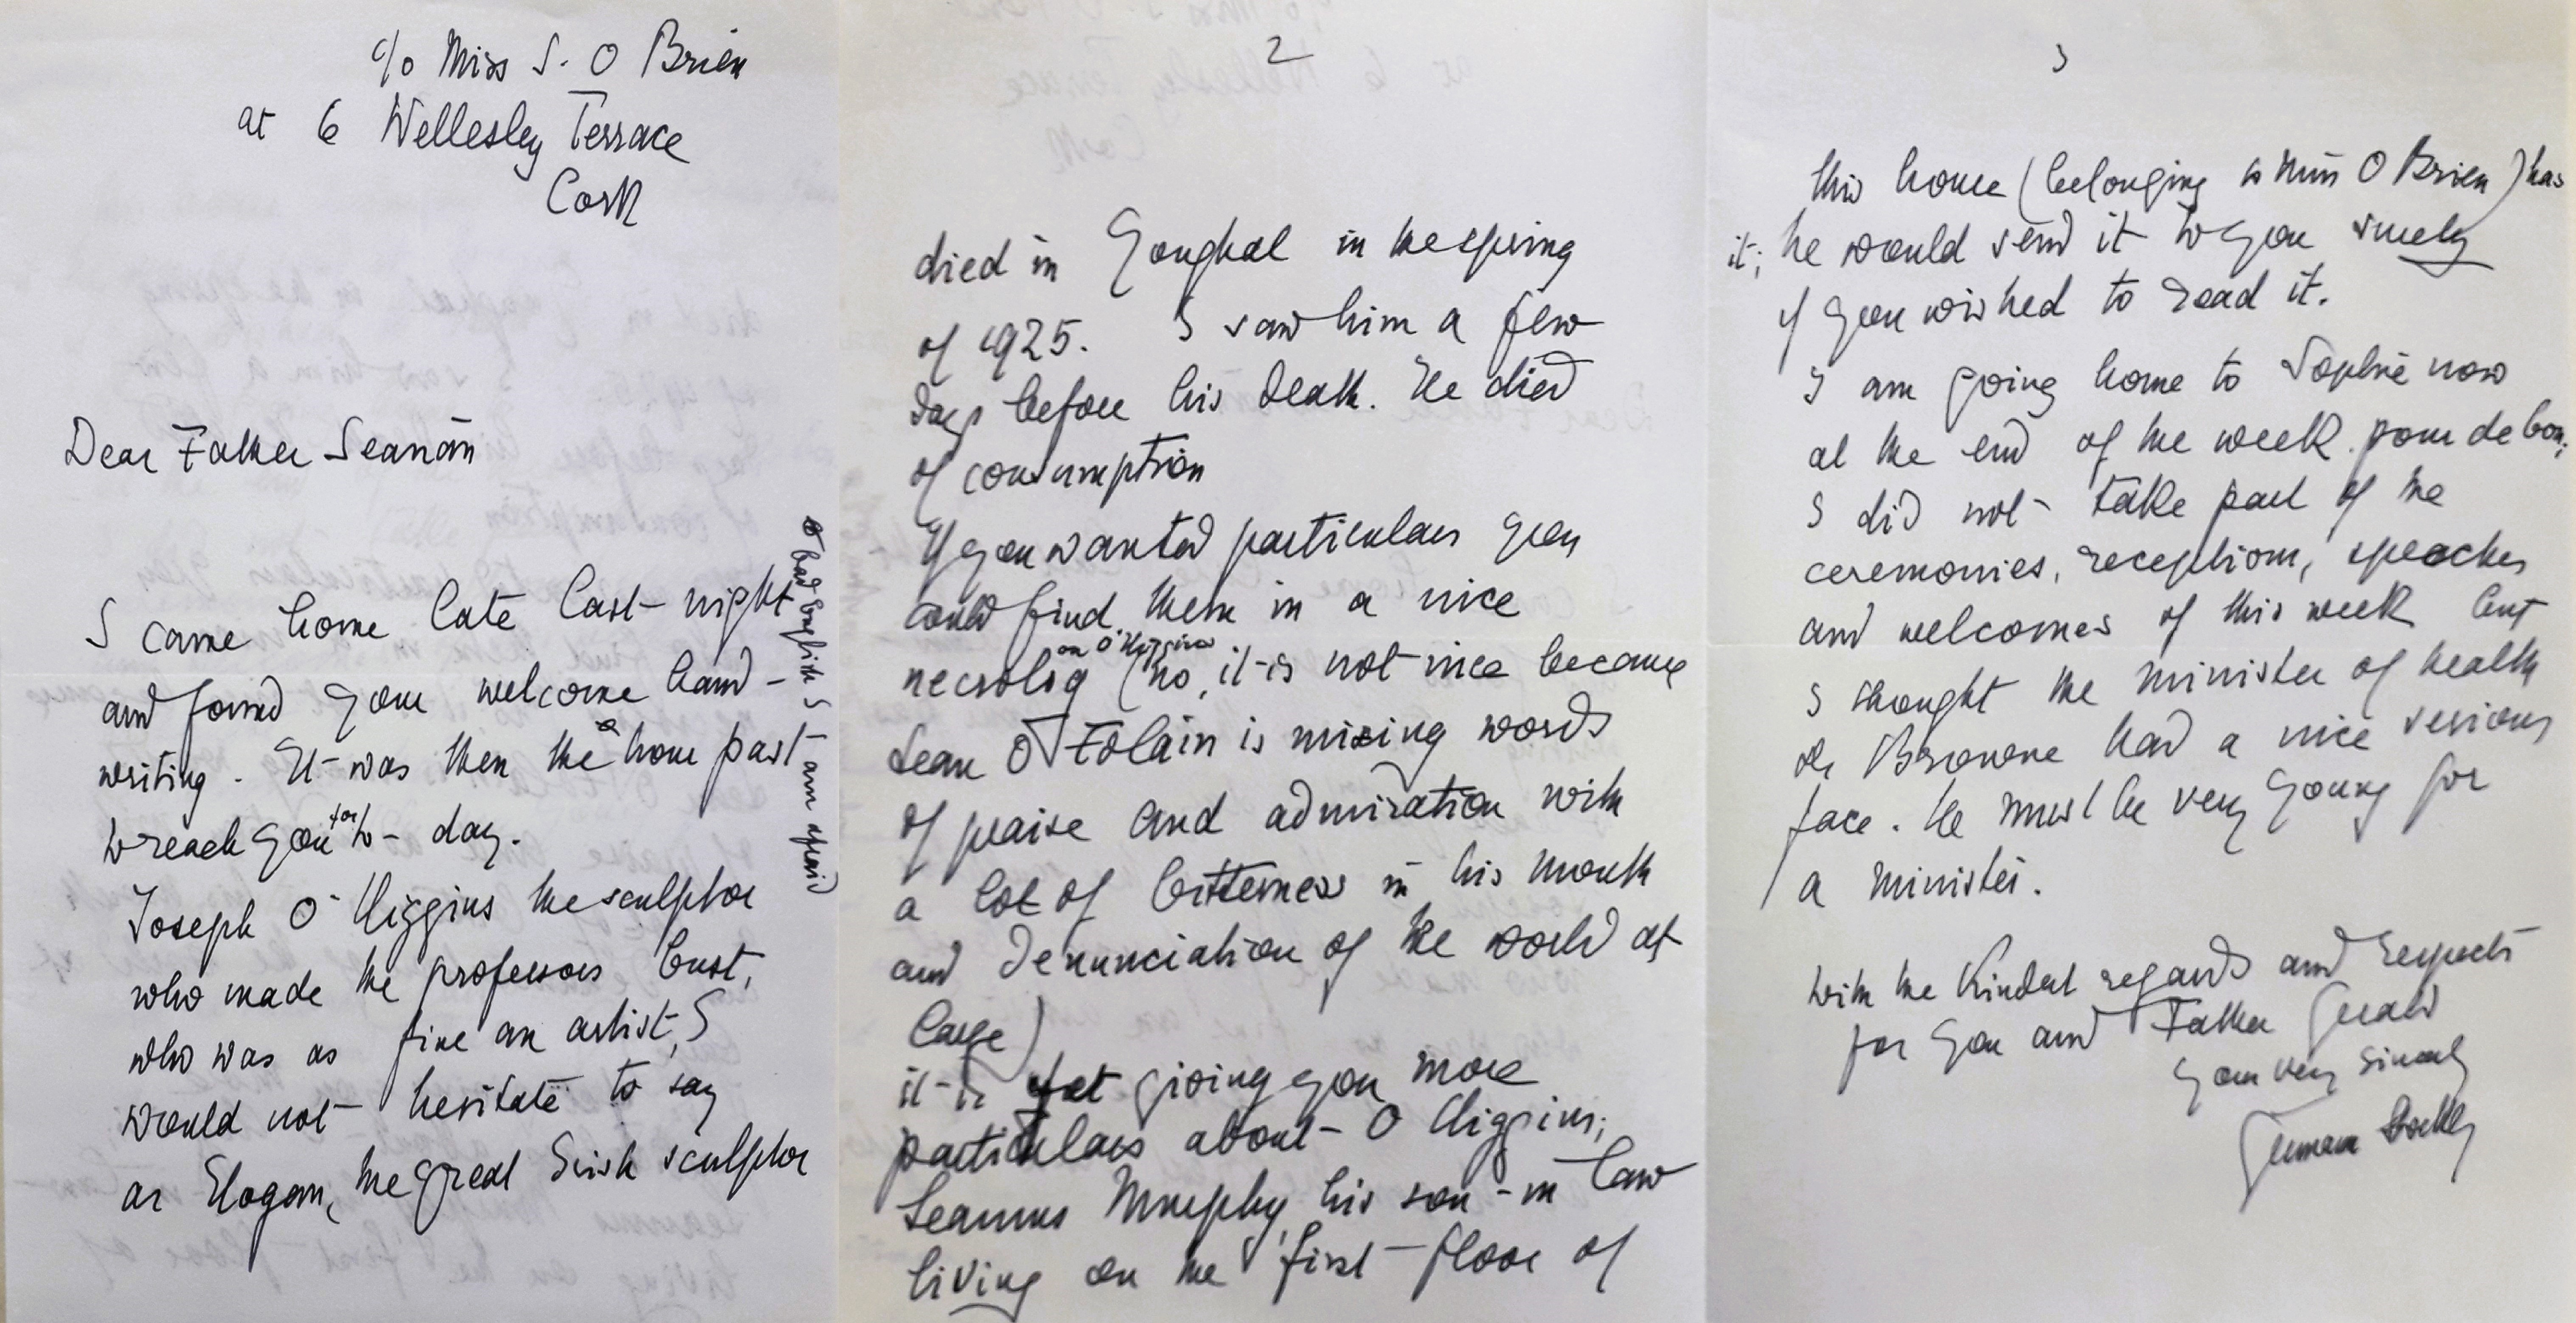 c/o Miss S. O Brien
at 6 Wellesley Terrace
Cork
Dear Father Seanán
I came home late last night
and found your welcome hand-
writing. It was then the hour past
to reach you for to-day.
bad english I am afraid
Joseph O'Higgins the sculptor
who made the professors bust,
who was as fine an artist, I
would not hesitate to say
as Hogan, the great Irish sculptor
2
died in Youghal in the spring
of 1925. I saw him a few
days before his death. He died
of consumption
If you wanted particulars you
could find them in a nice
necrolog on O'Higgins (no, it is not nice because
Sean O'Folain is mixing words
of praise and admiration with
a lot of bitterness in his mouth
and denunciation of the world at
large)
it is yet giving you more
particulars about O Higgins;
Seamus Murphy, his son-in law
living on the first floor of
3
this house (belonging to Miss O Brien) has
it; he would send it to you surely
if you wished to read it.
I am going home to Sophie now
at the end of the week. pour de bon;
I did not take part of the
ceremonies, receptions, speeches
and welcomes of this week but
I thought the minister of health
Dr Browne had a nice serious
face. He must be very young for
a minister.
With the kindest regards and respects
for you and Father Gerald
Your very sincerely
Germaine Stockley